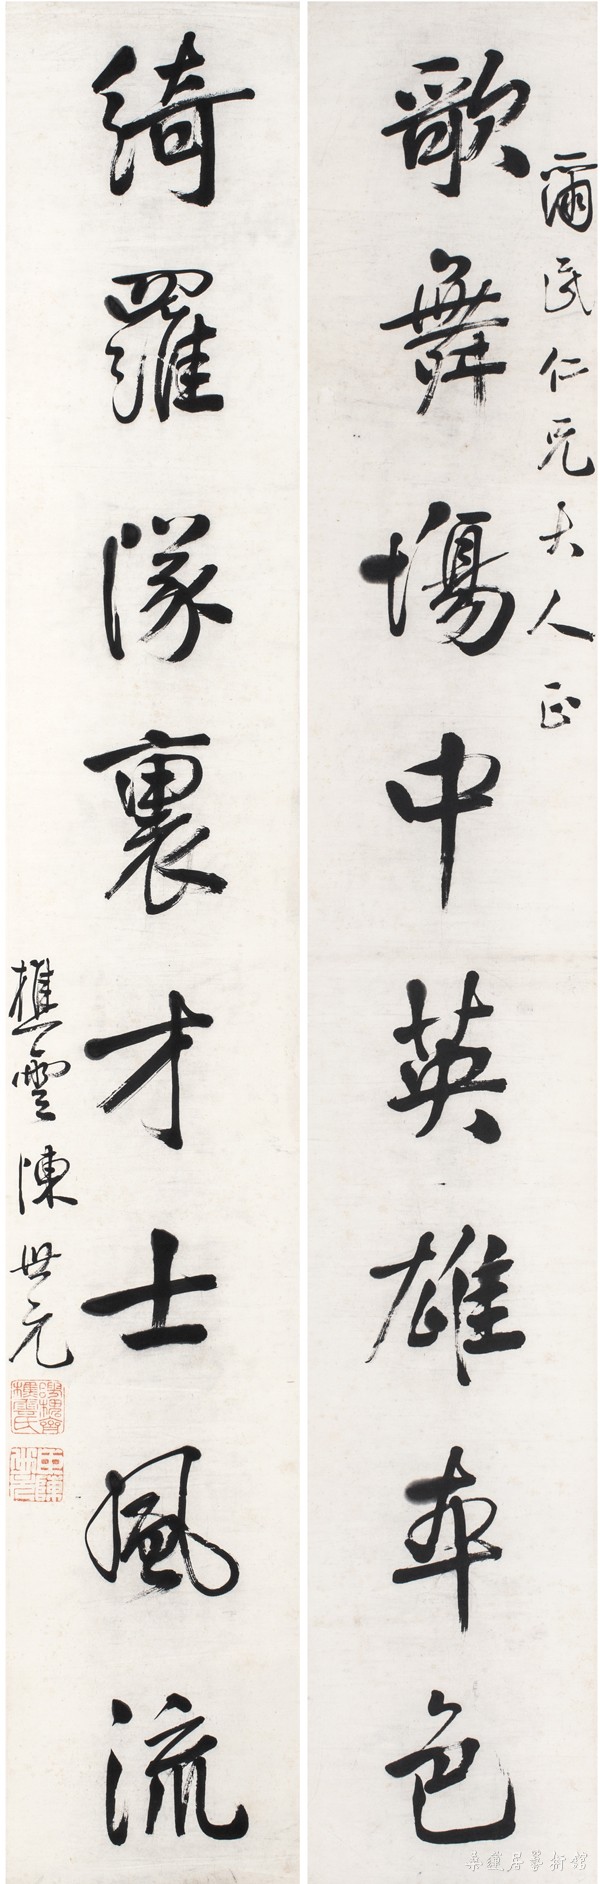 爾民仁兄大人正
歌舞場中英雄本色
綺羅隊裏才士風流
樵雲陳世元
樵雲氏
桑蓮居藝術館